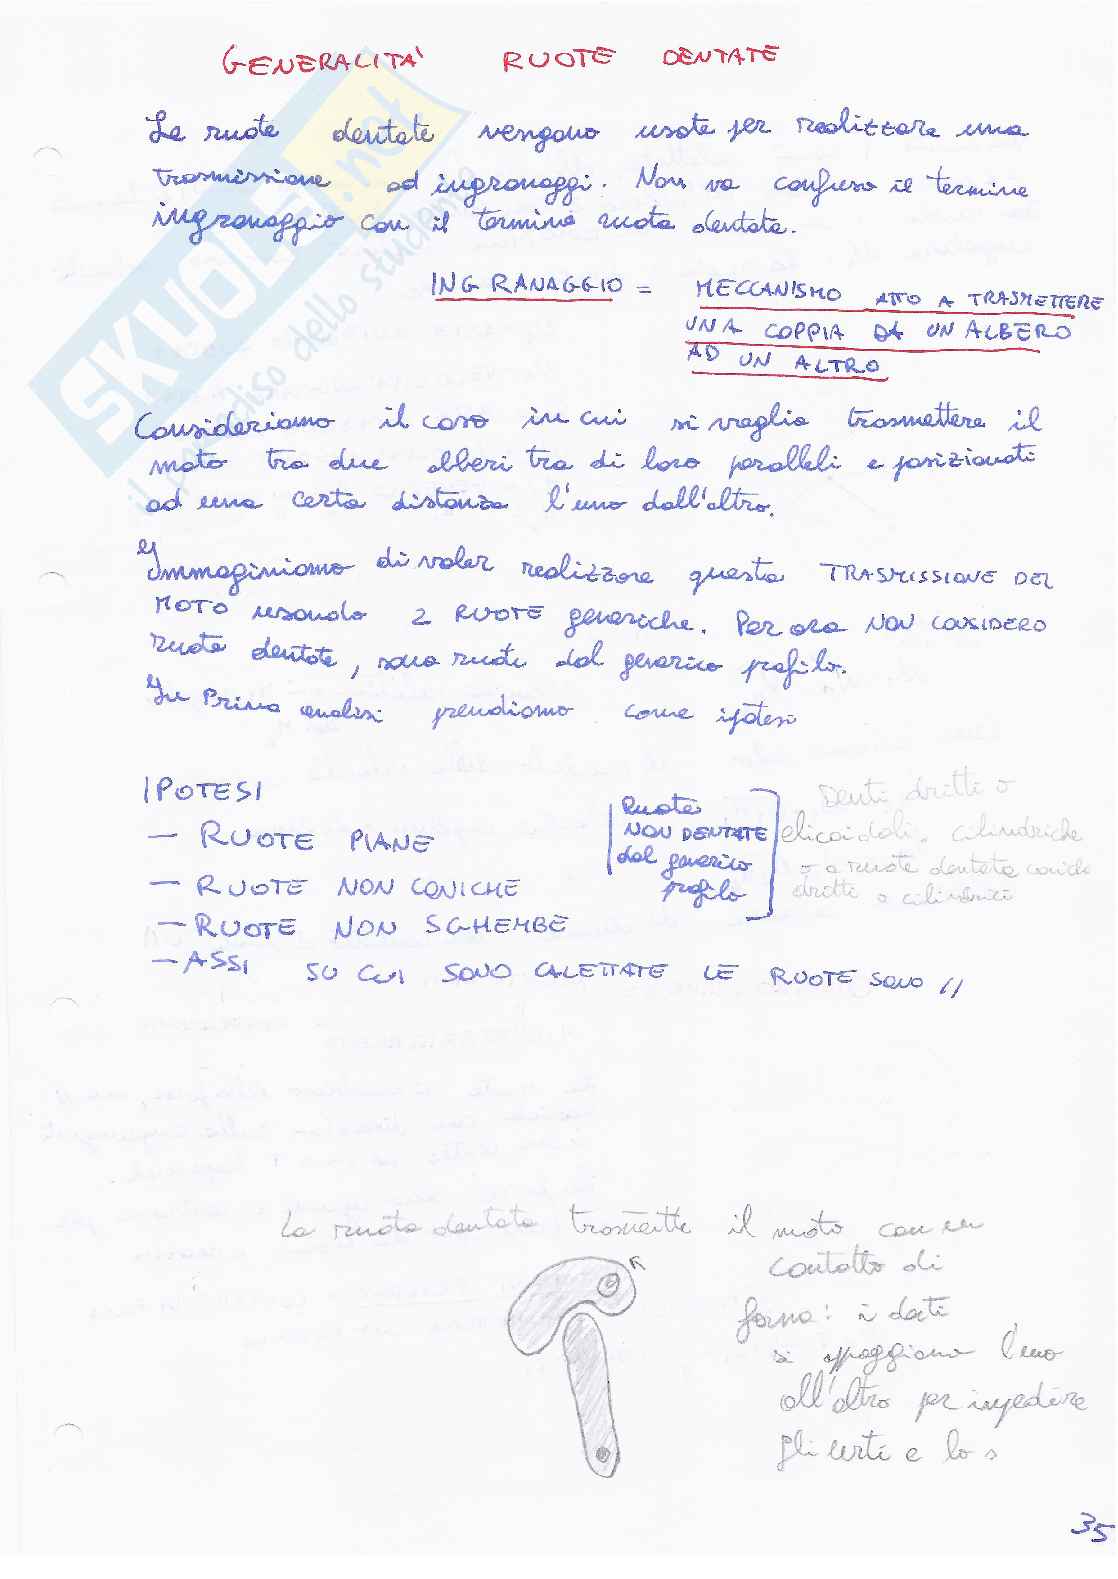 GENERALITA' RUOTE DENTATE
Le ruote dentate vengono usate per realizzare una
trasmissione ad ingranaggi. Non va confuso il termine
ingranaggio con il termine ruota dentata.
INGRANAGGIO = MECCANISMO ATTO A TRASMETTERE
UNA COPPIA DA UN ALBERO
AD UN ALTRO
Consideriamo il caso in cui si voglia trasmettere il
moto tra due alberi tra di loro paralleli e posizionati
ad una certa distanza l'uno dall'altro.
Immaginiamo di voler realizzare questa TRASMISSIONE DEL
MOTO usando 2 RUOTE generiche. Per ora NON CONSIDERO
ruote dentate, sono ruote dal generico profilo.
In Prima analisi prendiamo come ipotesi
IPOTESI
— RUOTE PIANE
— RUOTE NON CONICHE
— RUOTE NON SGHEMBE
— ASSI SU CUI SONO CALETTATE LE RUOTE SONO //
Ruote
NON DENTATE
dal generico
profilo
Denti dritti o
elicoidali, cilindriche
o a ruote dentate coniche
dritti o cilindrici
La ruota dentata trasmette il moto con un
contatto di
forma: i dati
si appoggiano l'uno
all'altro per impedire
gli urti e lo s
35
SKUOLA.net
il paradiso dello studente